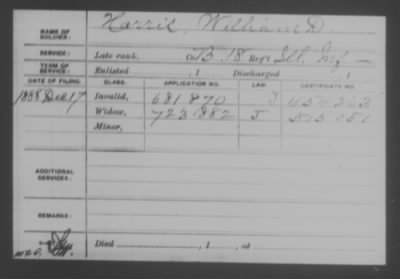 NAME OF SOLDIER: Harris, William D.
SERVICE: Late rank, Co. B, 18 Reg't Ill. Inf
TERM OF SERVICE: Enlisted , 1 Discharged , 1
DATE OF FILING. CLASS. APPLICATION NO. LAW. CERTIFICATE NO.
1888 Dec 17 Invalid, 681.870 J 454 263
Widow, 723.882 J 515 051
Minor,
ADDITIONAL SERVICES:
REMARKS:
Died , 1 , at